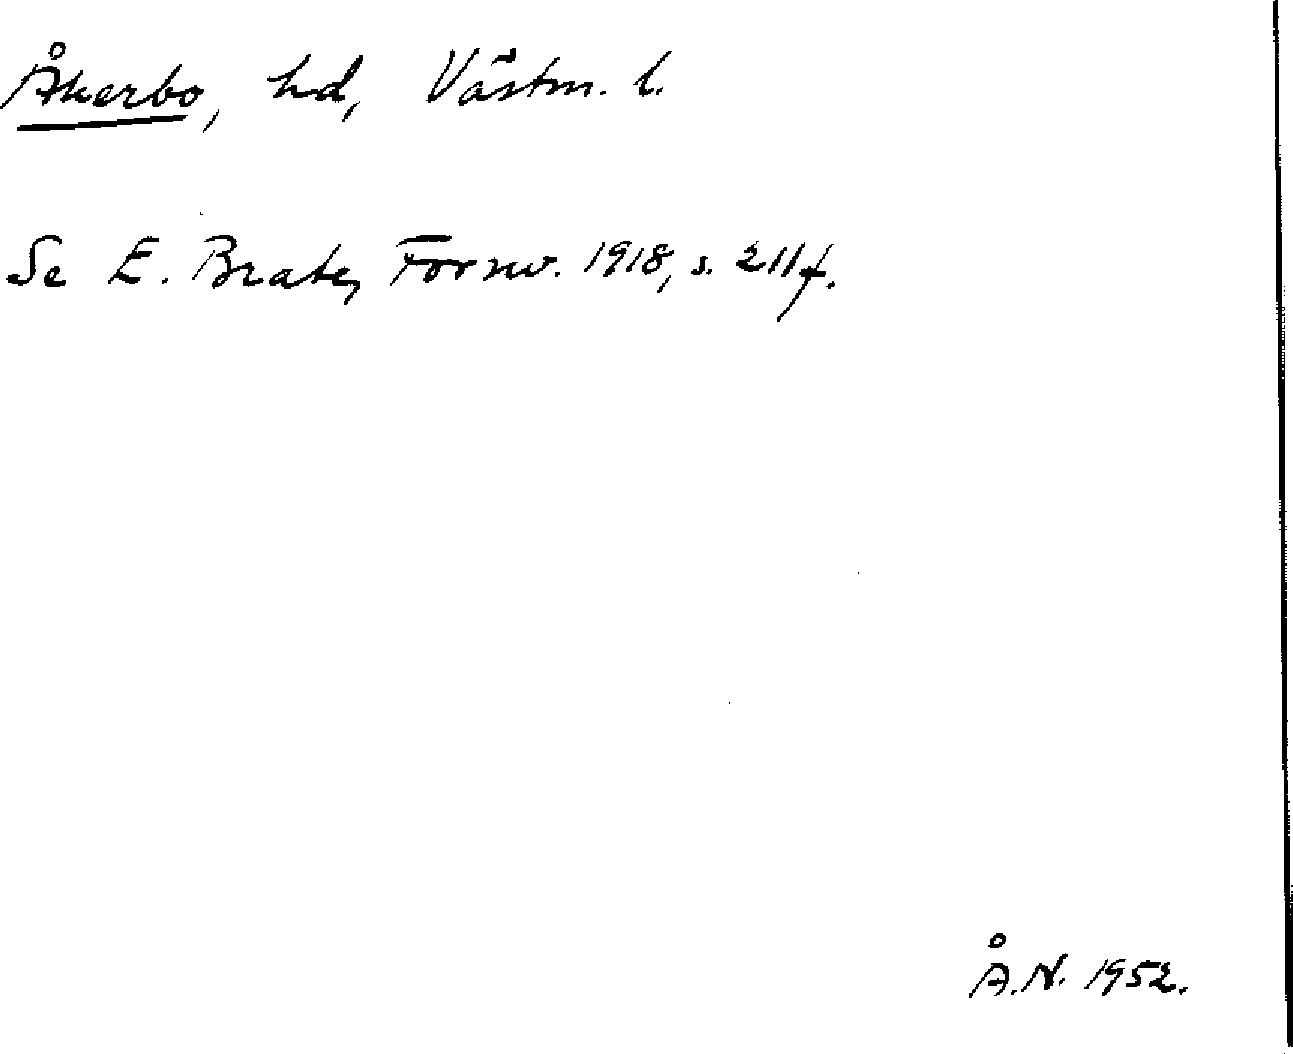 Åkerbo, hd, Västm. l.
Se E. Brate, Fornv. 1918, s. 211 f.
Å.N. 1952.